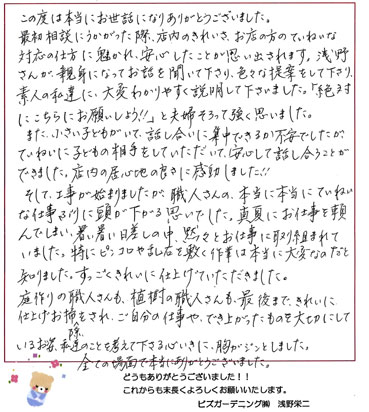 この度は本当にお世話になりありがとうございました。
最初相談にうかがった際、店内のきれいさ、お店の方のていねいな
対応の仕方に魅かれ、安心したことが思い出されます。浅野
さんが、親身になってお話を聞いて下さり、色々な提案をして下さり、
素人の私達に、大変わかりやすく説明して下さいました。「絶対
にこちらにお願いしよう!!」と夫婦そろって強く思いました。
また、小さい子どもがいて、話し合いに集中できるか不安でしたが、
ていねいに子どもの相手をしていただいて、安心して話し合うことが
できました。店内の居心地の良さに感動しました!!
そして、工事が始まりましたが、職人さんの、本当に本当にていねい
な仕事ぶりに頭が下がる思いでした。真夏にお仕事を頼
んでしまい、暑い暑い日差しの中、黙々とお仕事に取り組まれて
いました。特にピンコロや乱石を敷く作業は本当に大変なのだと
知りました。すっごくきれいに仕上げていただきました。
庭作りの職人さんも、植樹の職人さんも、最後まで、きれいに
仕上げお掃除をされ、ご自分の仕事や、でき上がったものを大切にして
いるお姿、私達のことを考えて下さる心いきに、胸がジンとしました。
全ての場面で本当にありがとうございました。
どうもありがとうございました！！
これからも末長くよろしくお願いいたします。
ビズガーデニング㈱ 浅野栄二